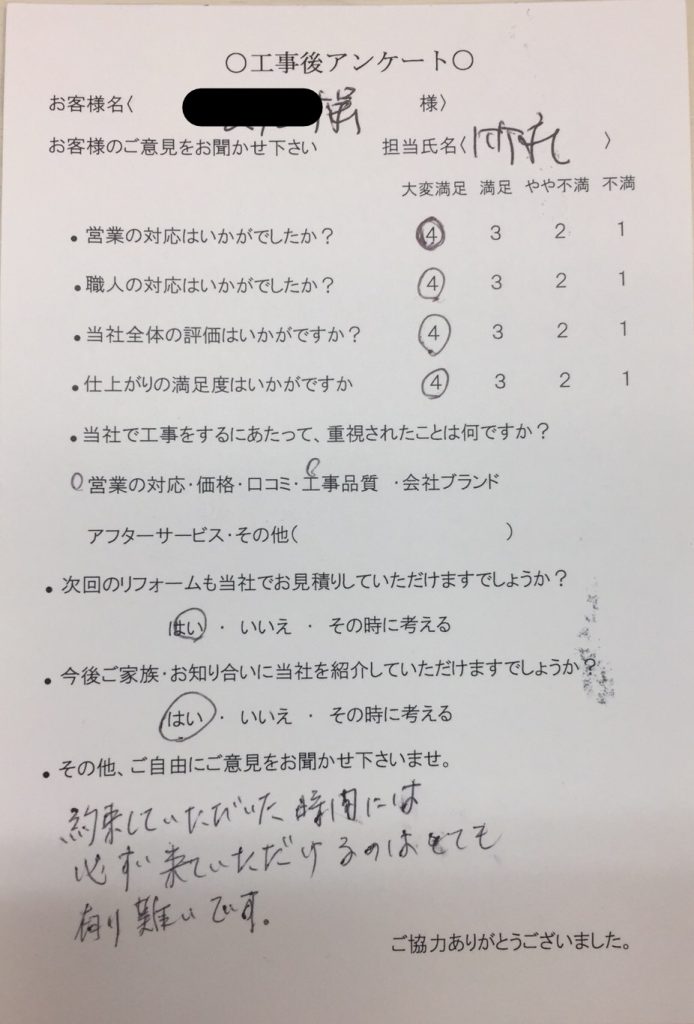 ○工事後アンケート○
お客様名〈 様 様〉
お客様のご意見をお聞かせ下さい 担当氏名〈 〉
大変満足 満足 やや不満 不満
・営業の対応はいかがでしたか? 4 3 2 1
・職人の対応はいかがでしたか? 4 3 2 1
・当社全体の評価はいかがですか? 4 3 2 1
・仕上がりの満足度はいかがですか 4 3 2 1
・当社で工事をするにあたって、重視されたことは何ですか?
○営業の対応・価格・口コミ・○工事品質 ・会社ブランド
アフターサービス・その他( )
・次回のリフォームも当社でお見積りしていただけますでしょうか?
はい ・ いいえ ・ その時に考える
・今後ご家族・お知り合いに当社を紹介していただけますでしょうか?
はい ・ いいえ ・ その時に考える
・その他、ご自由にご意見をお聞かせ下さいませ。
約束していただいた時間には
必ず来ていただけるのはとても
有り難いです。
ご協力ありがとうございました。